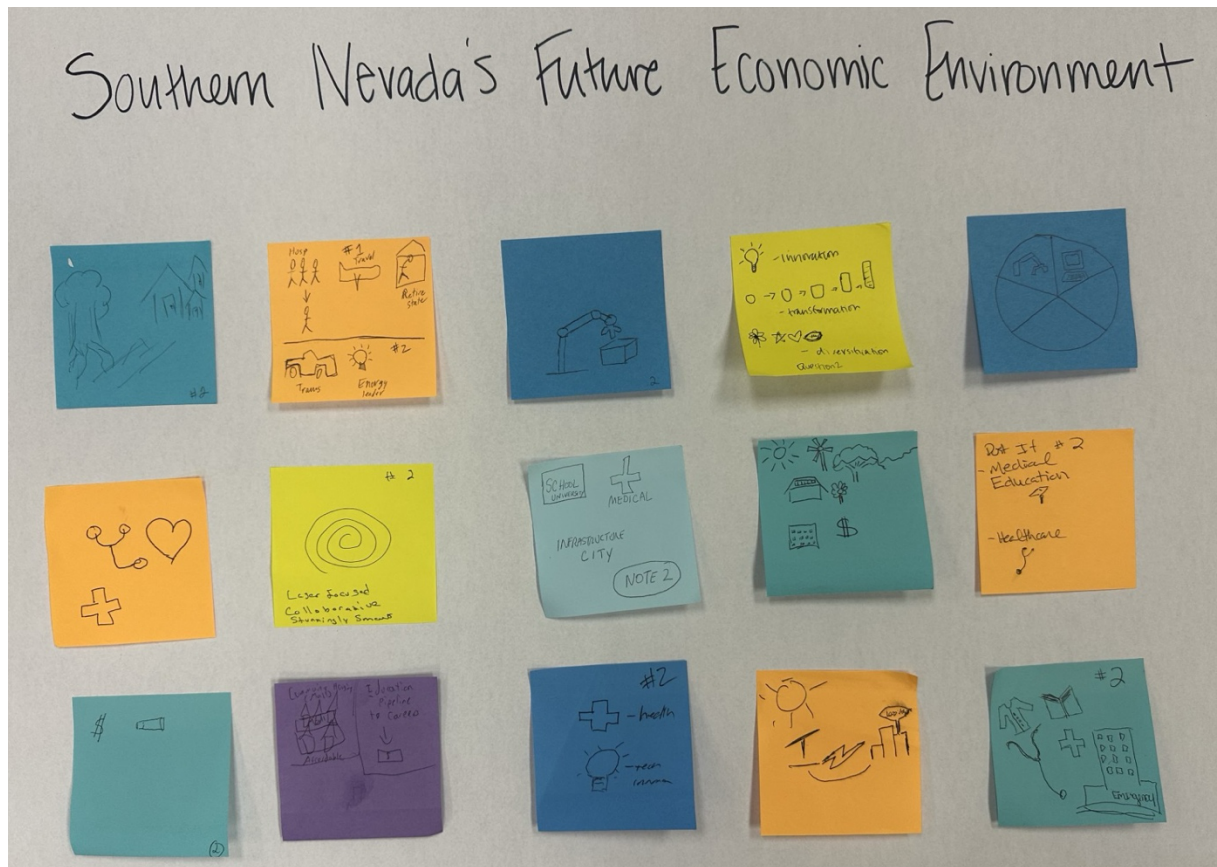 Southern Nevada's Future Economic Environment
#2
Hosp
#1
Travel
#2
Trans
Energy
leader
2
- innovation
- transformation
- diversification
Question 2
# 2
Laser focused
Collaborative
Stunningly Smart
SCHOOL
UNIVERSITY
MEDICAL
INFRASTRUCTURE
CITY
NOTE 2
$
Post It #2
- Medical
Education
- Healthcare
$
2
Education
Pipeline
to Careers
Affordable
#2
- health
#2